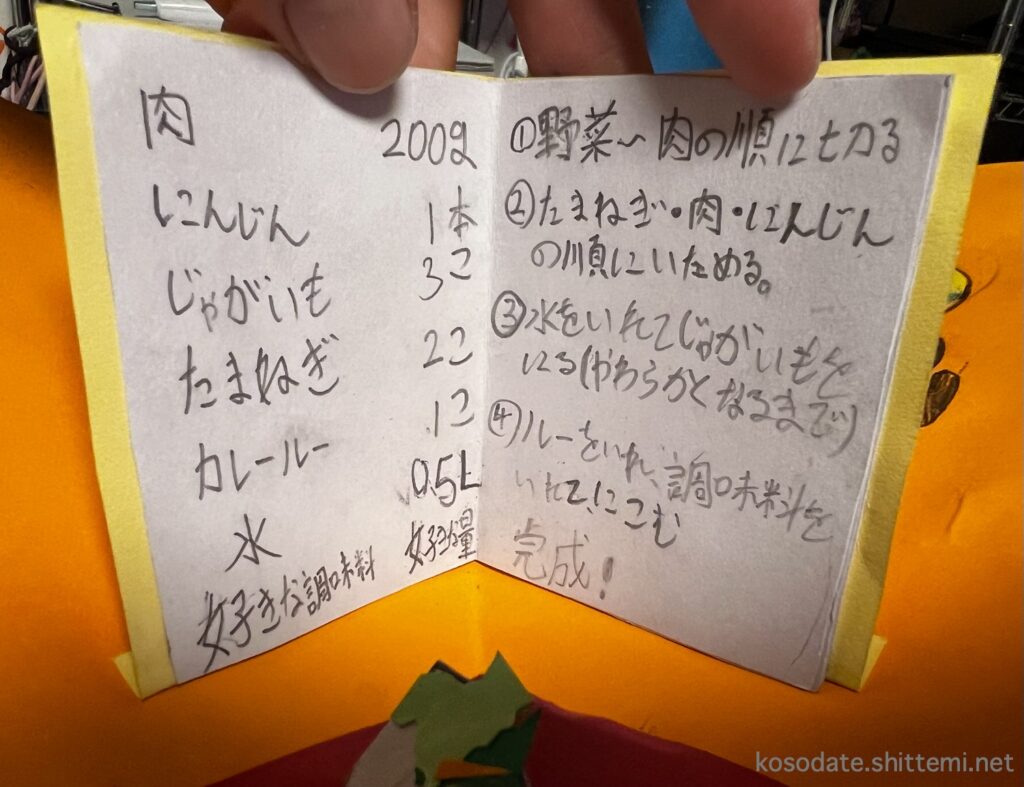 肉 200g
にんじん 1本
じゃがいも 3こ
たまねぎ 2こ
カレールー 1こ
水 0.5L
好きな調味料 好きな量
①野菜〜肉の順に切る
②たまねぎ・肉・にんじん
の順にいためる。
③水をいれてじゃがいもを
にる(やわらかくなるまで)
④ルーをいれ、調味料を
いれて、にこむ
完成!
kosodate.shittemi.net